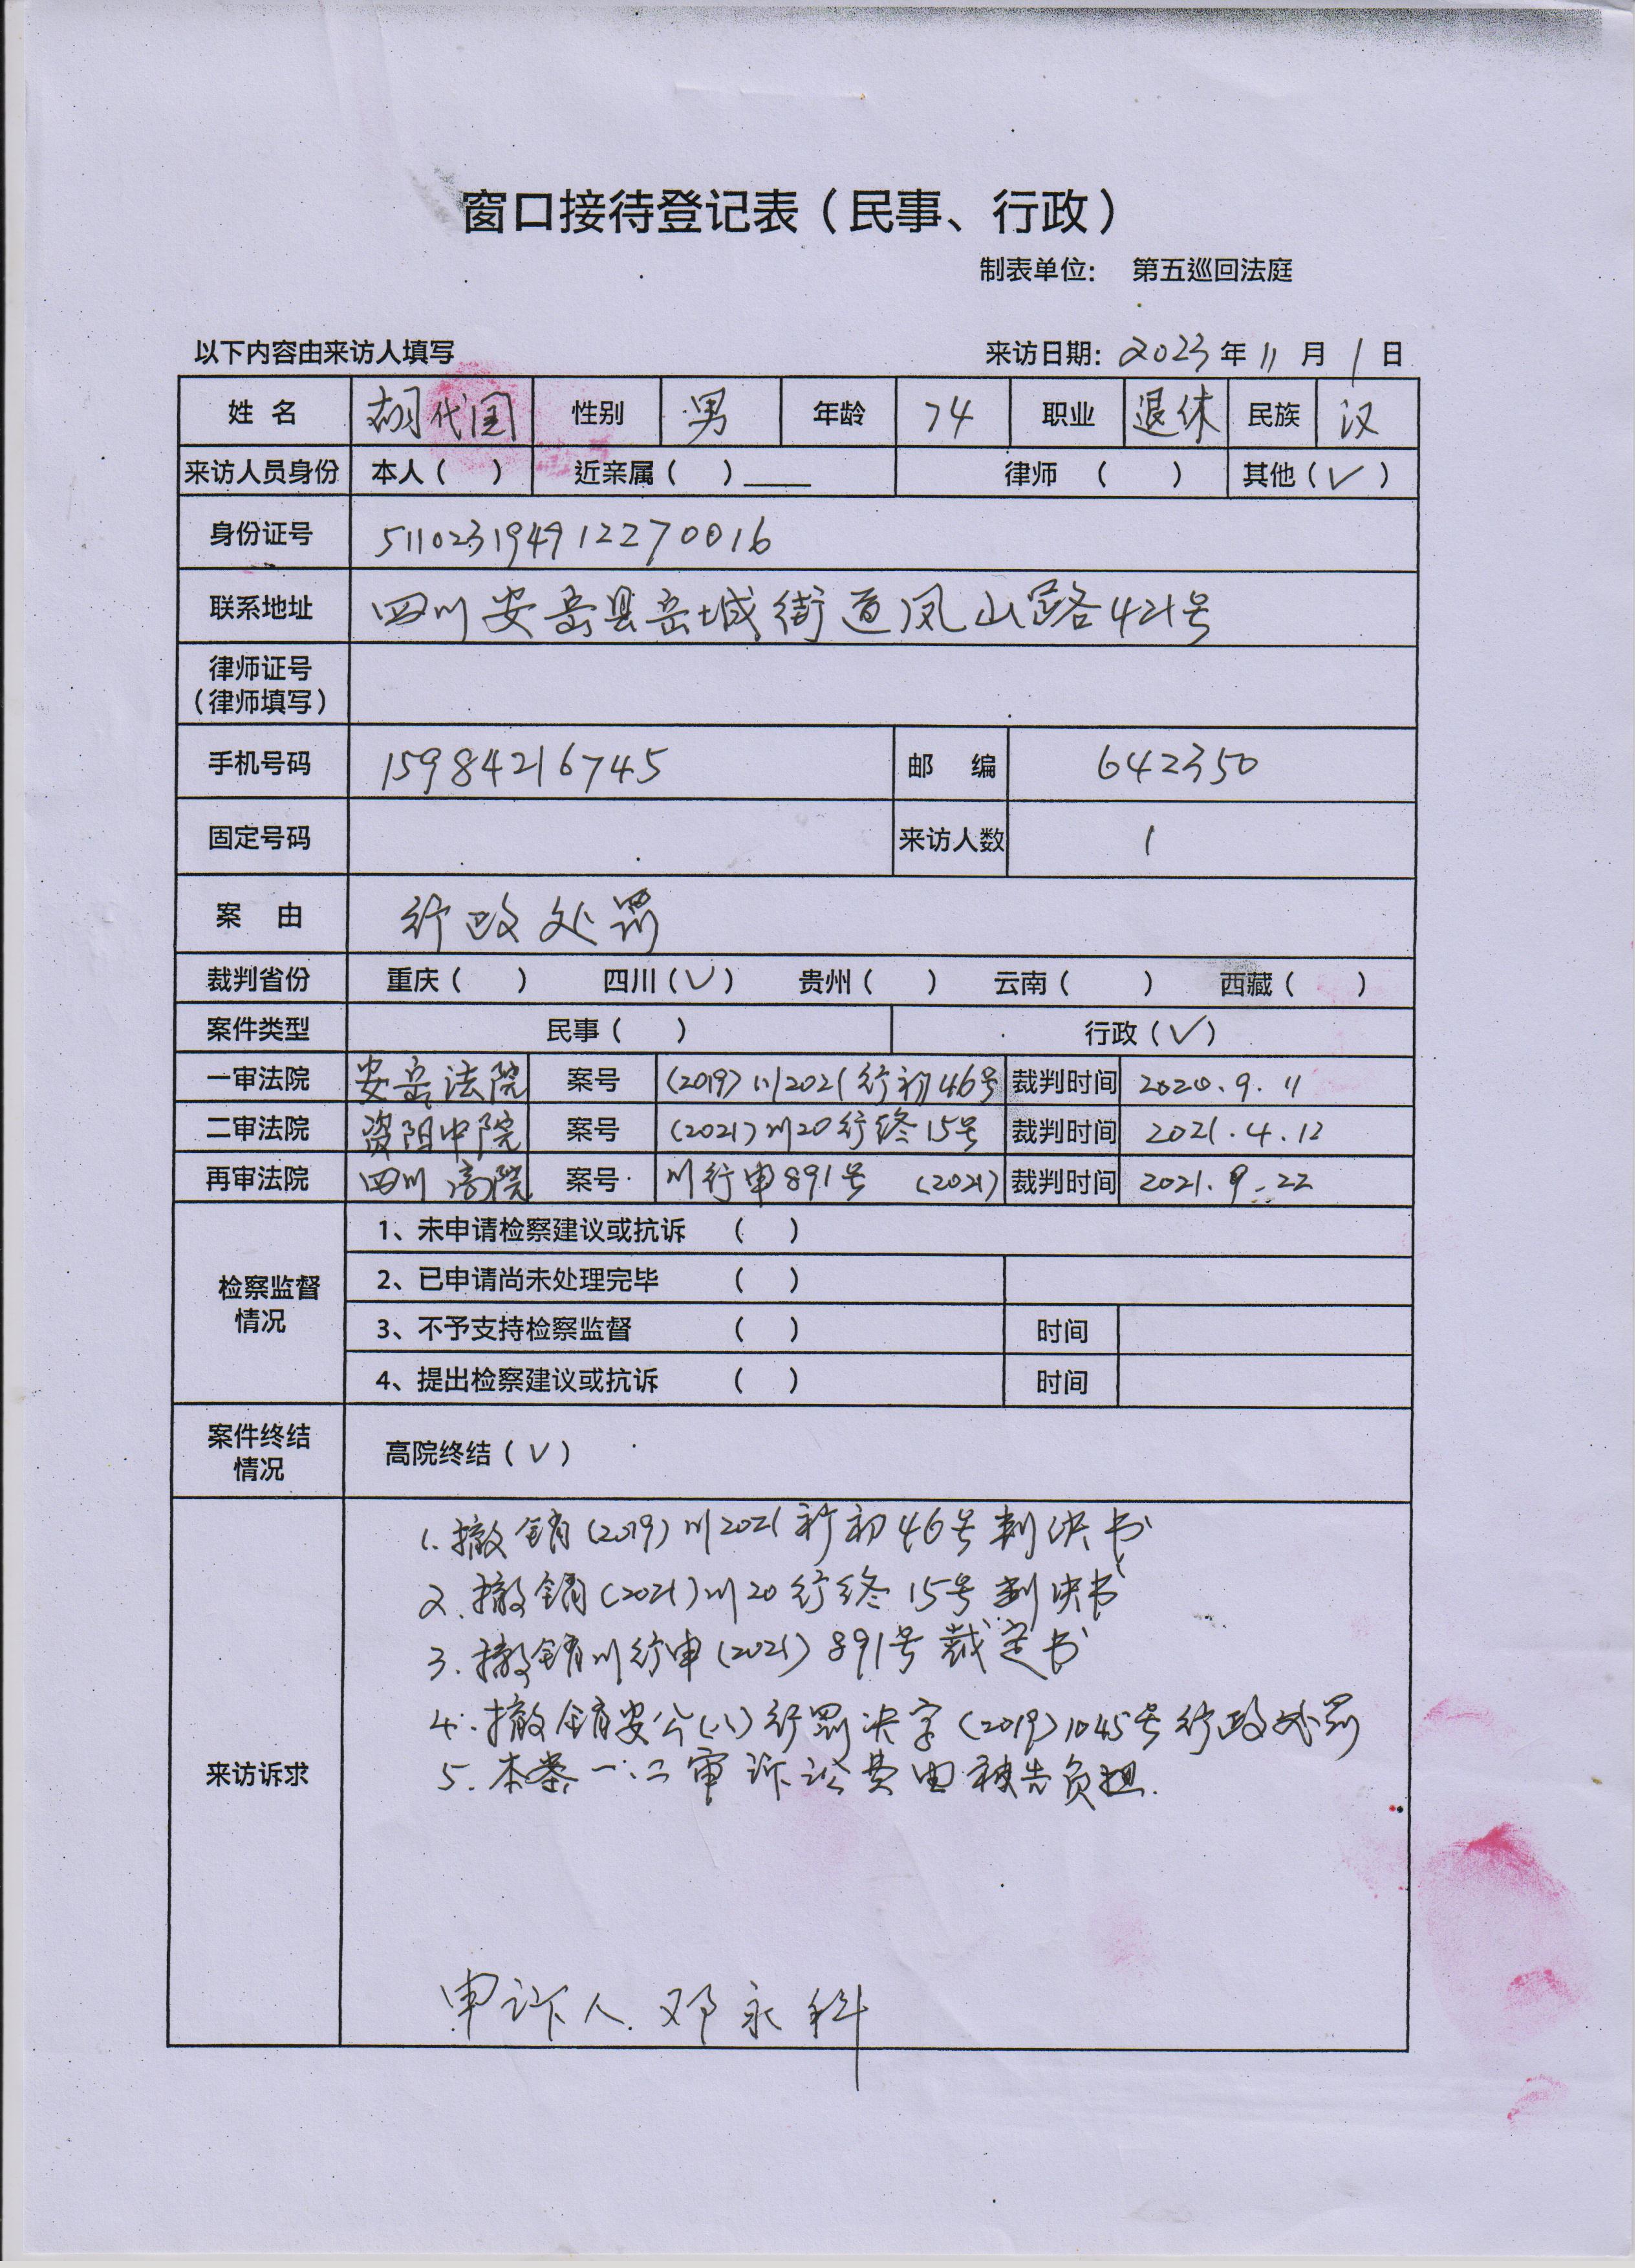 窗口接待登记表（民事、行政）
制表单位： 第五巡回法庭
以下内容由来访人填写 来访日期：2023年11月1日
姓名 胡代国 性别 男 年龄 74 职业 退休 民族 汉
来访人员身份 本人（ ） 近亲属（ ）____ 律师（ ） 其他（✓）
身份证号 511023194912270016
联系地址 四川安岳县岳城街道凤山路421号
律师证号
（律师填写）
手机号码 15984216745 邮 编 642350
固定号码 来访人数 1
案 由 行政处罚
裁判省份 重庆（ ） 四川（✓） 贵州（ ） 云南（ ） 西藏（ ）
案件类型 民事（ ） 行政（✓）
一审法院 安岳法院 案号 (2019)川2021行初46号 裁判时间 2020.9.11
二审法院 资阳中院 案号 (2021)川20行终15号 裁判时间 2021.4.12
再审法院 四川高院 案号 川行申891号 (2021) 裁判时间 2021.9.22
检察监督
情况
1、未申请检察建议或抗诉 （ ）
2、已申请尚未处理完毕 （ ）
3、不予支持检察监督 （ ） 时间
4、提出检察建议或抗诉 （ ） 时间
案件终结
情况
高院终结（✓）
来访诉求
1.撤销(2019)川2021行初46号判决书
2.撤销(2021)川20行终15号判决书
3.撤销川行申(2021)891号裁定书
4.撤销安公(八)行罚决字(2019)1045号行政处罚
5.本案一、二审诉讼费由被告负担.
申诉人.邓永科